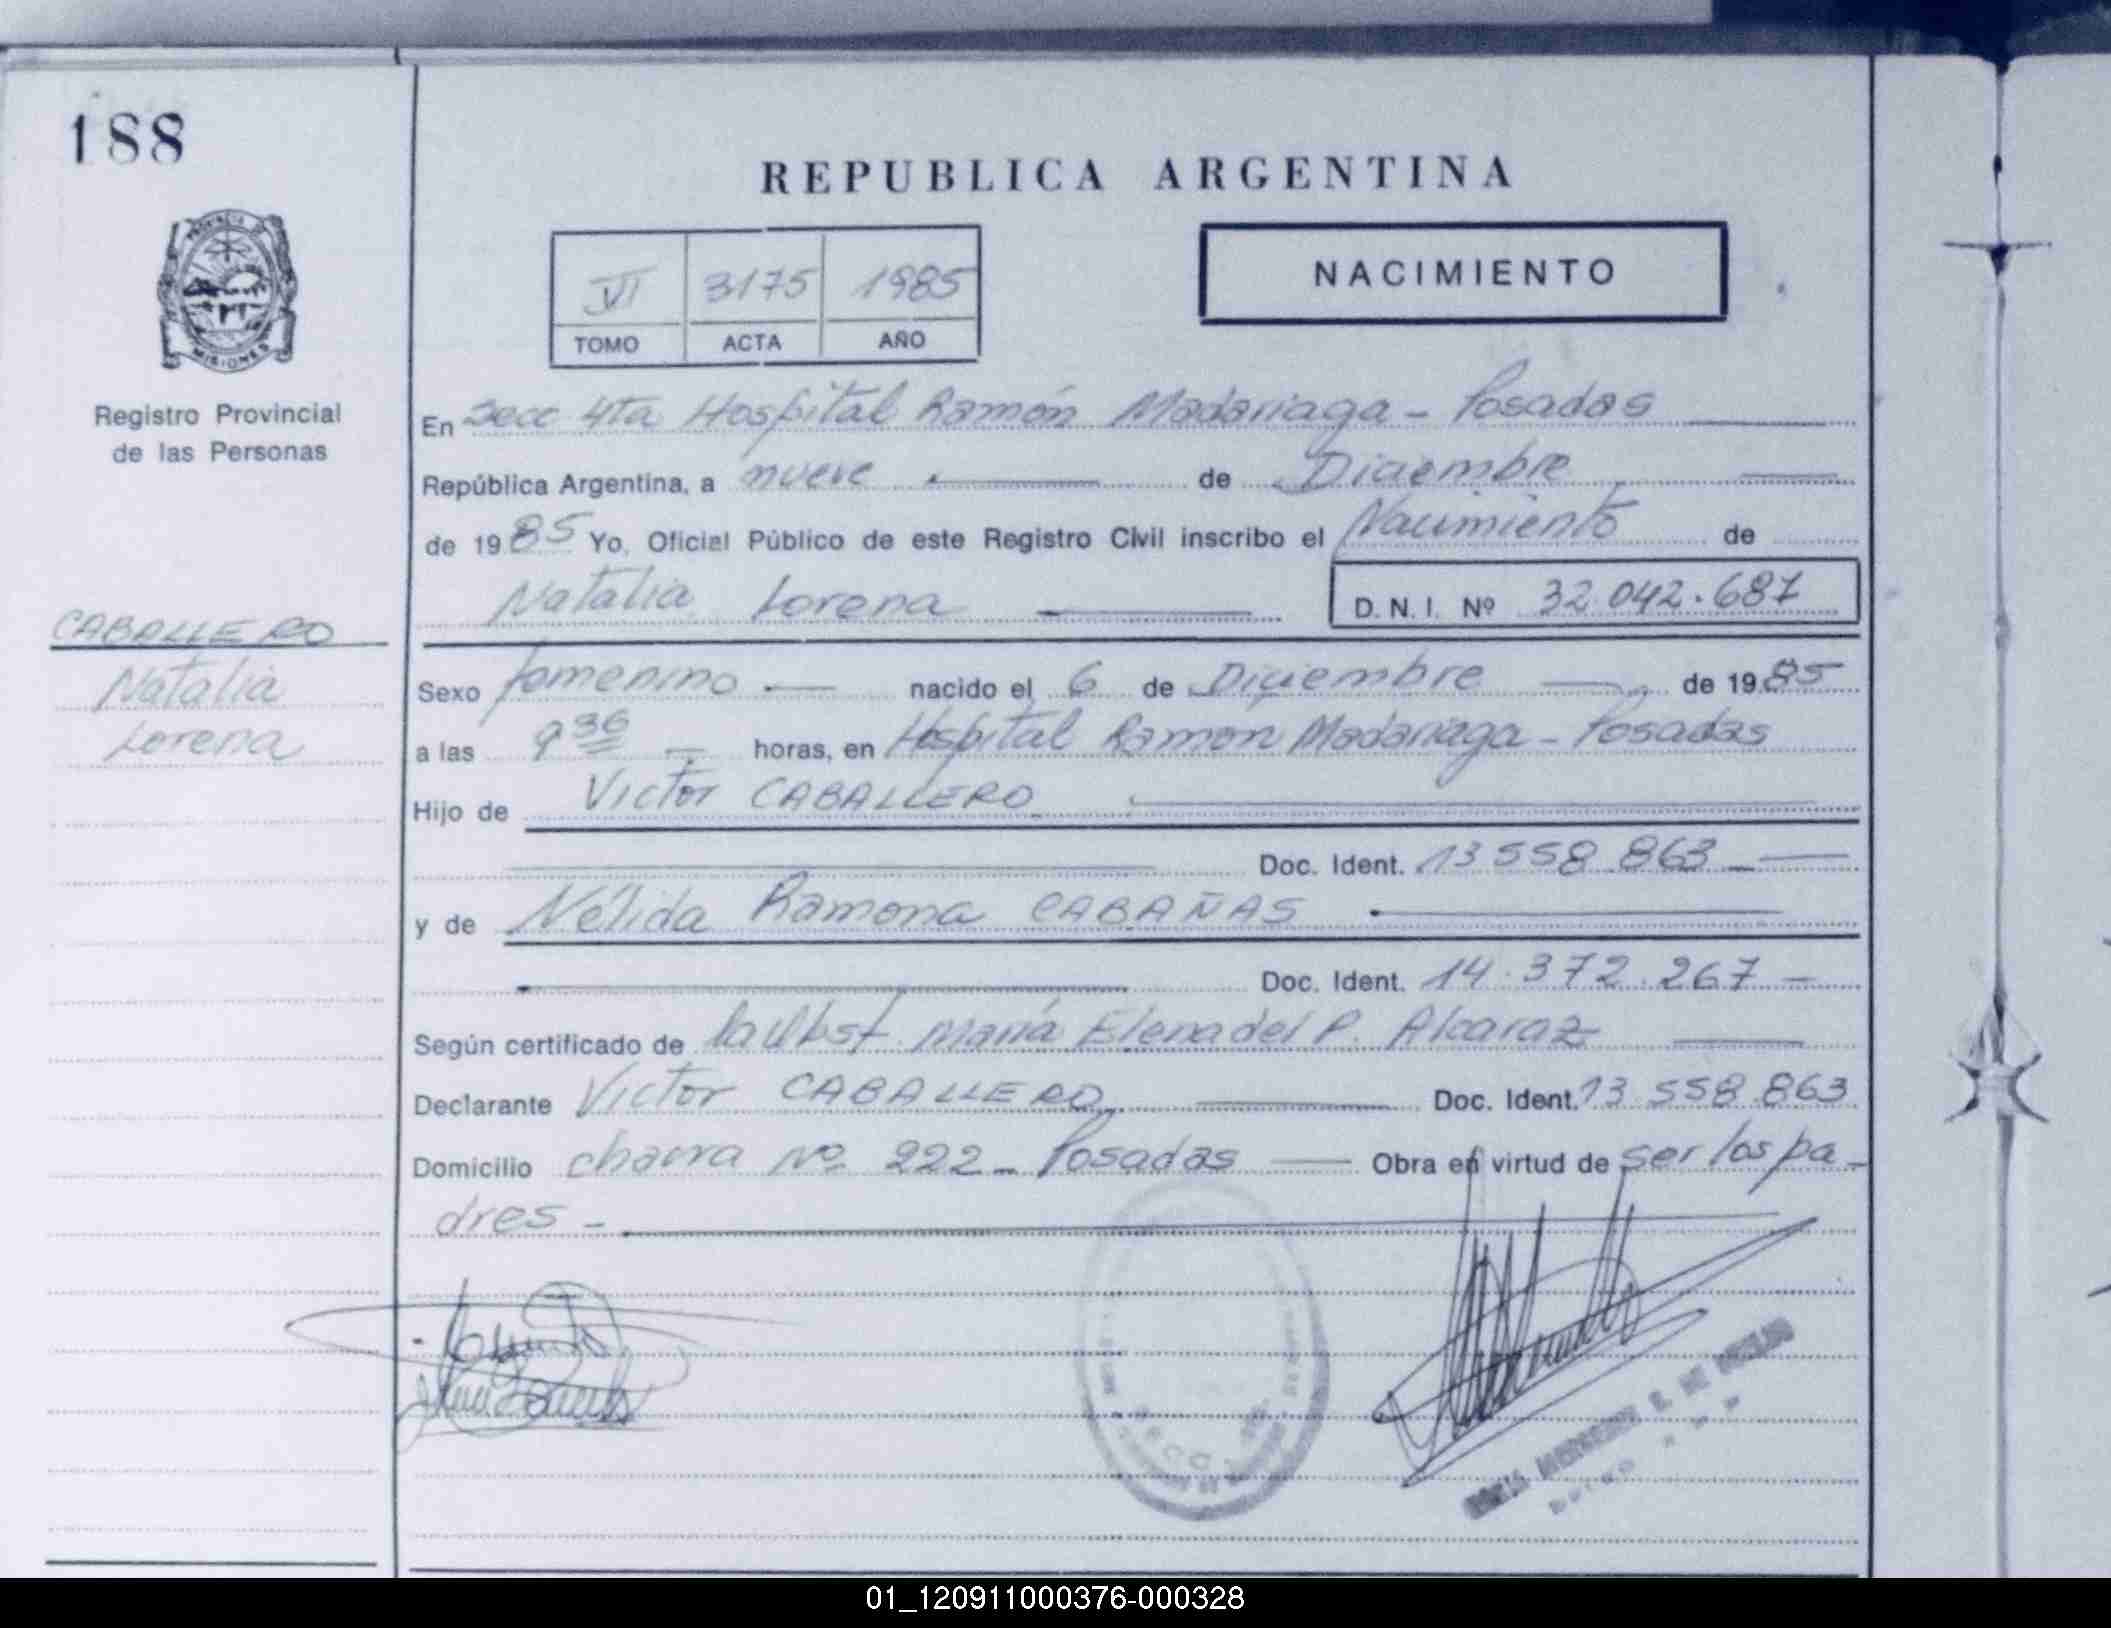 188
REPUBLICA ARGENTINA
PROVINCIA DE
MISIONES
Registro Provincial
de las Personas
VI 3175 1985
TOMO ACTA AÑO
NACIMIENTO
En Secc 4ta Hospital Ramón Madariaga - Posadas
República Argentina, a nueve de Diciembre
de 1985 Yo, Oficial Público de este Registro Civil inscribo el Nacimiento de
Natalia Lorena D.N.I. Nº 32.042.687
CABALLERO
Natalia
Lorena
Sexo femenino nacido el 6 de Diciembre de 1985
a las 9 36 horas, en Hospital Ramon Madariaga - Posadas
Hijo de Victor CABALLERO
Doc. Ident. 13.558.863
y de Nélida Ramona CABAÑAS
Doc. Ident. 14.372.267
Según certificado de la Obst. María Elena del P. Alcaraz
Declarante Victor CABALLERO Doc. Ident. 13.558.863
Domicilio chacra Nº 222 - Posadas Obra en virtud de ser los pa-
dres -
01_120911000376-000328